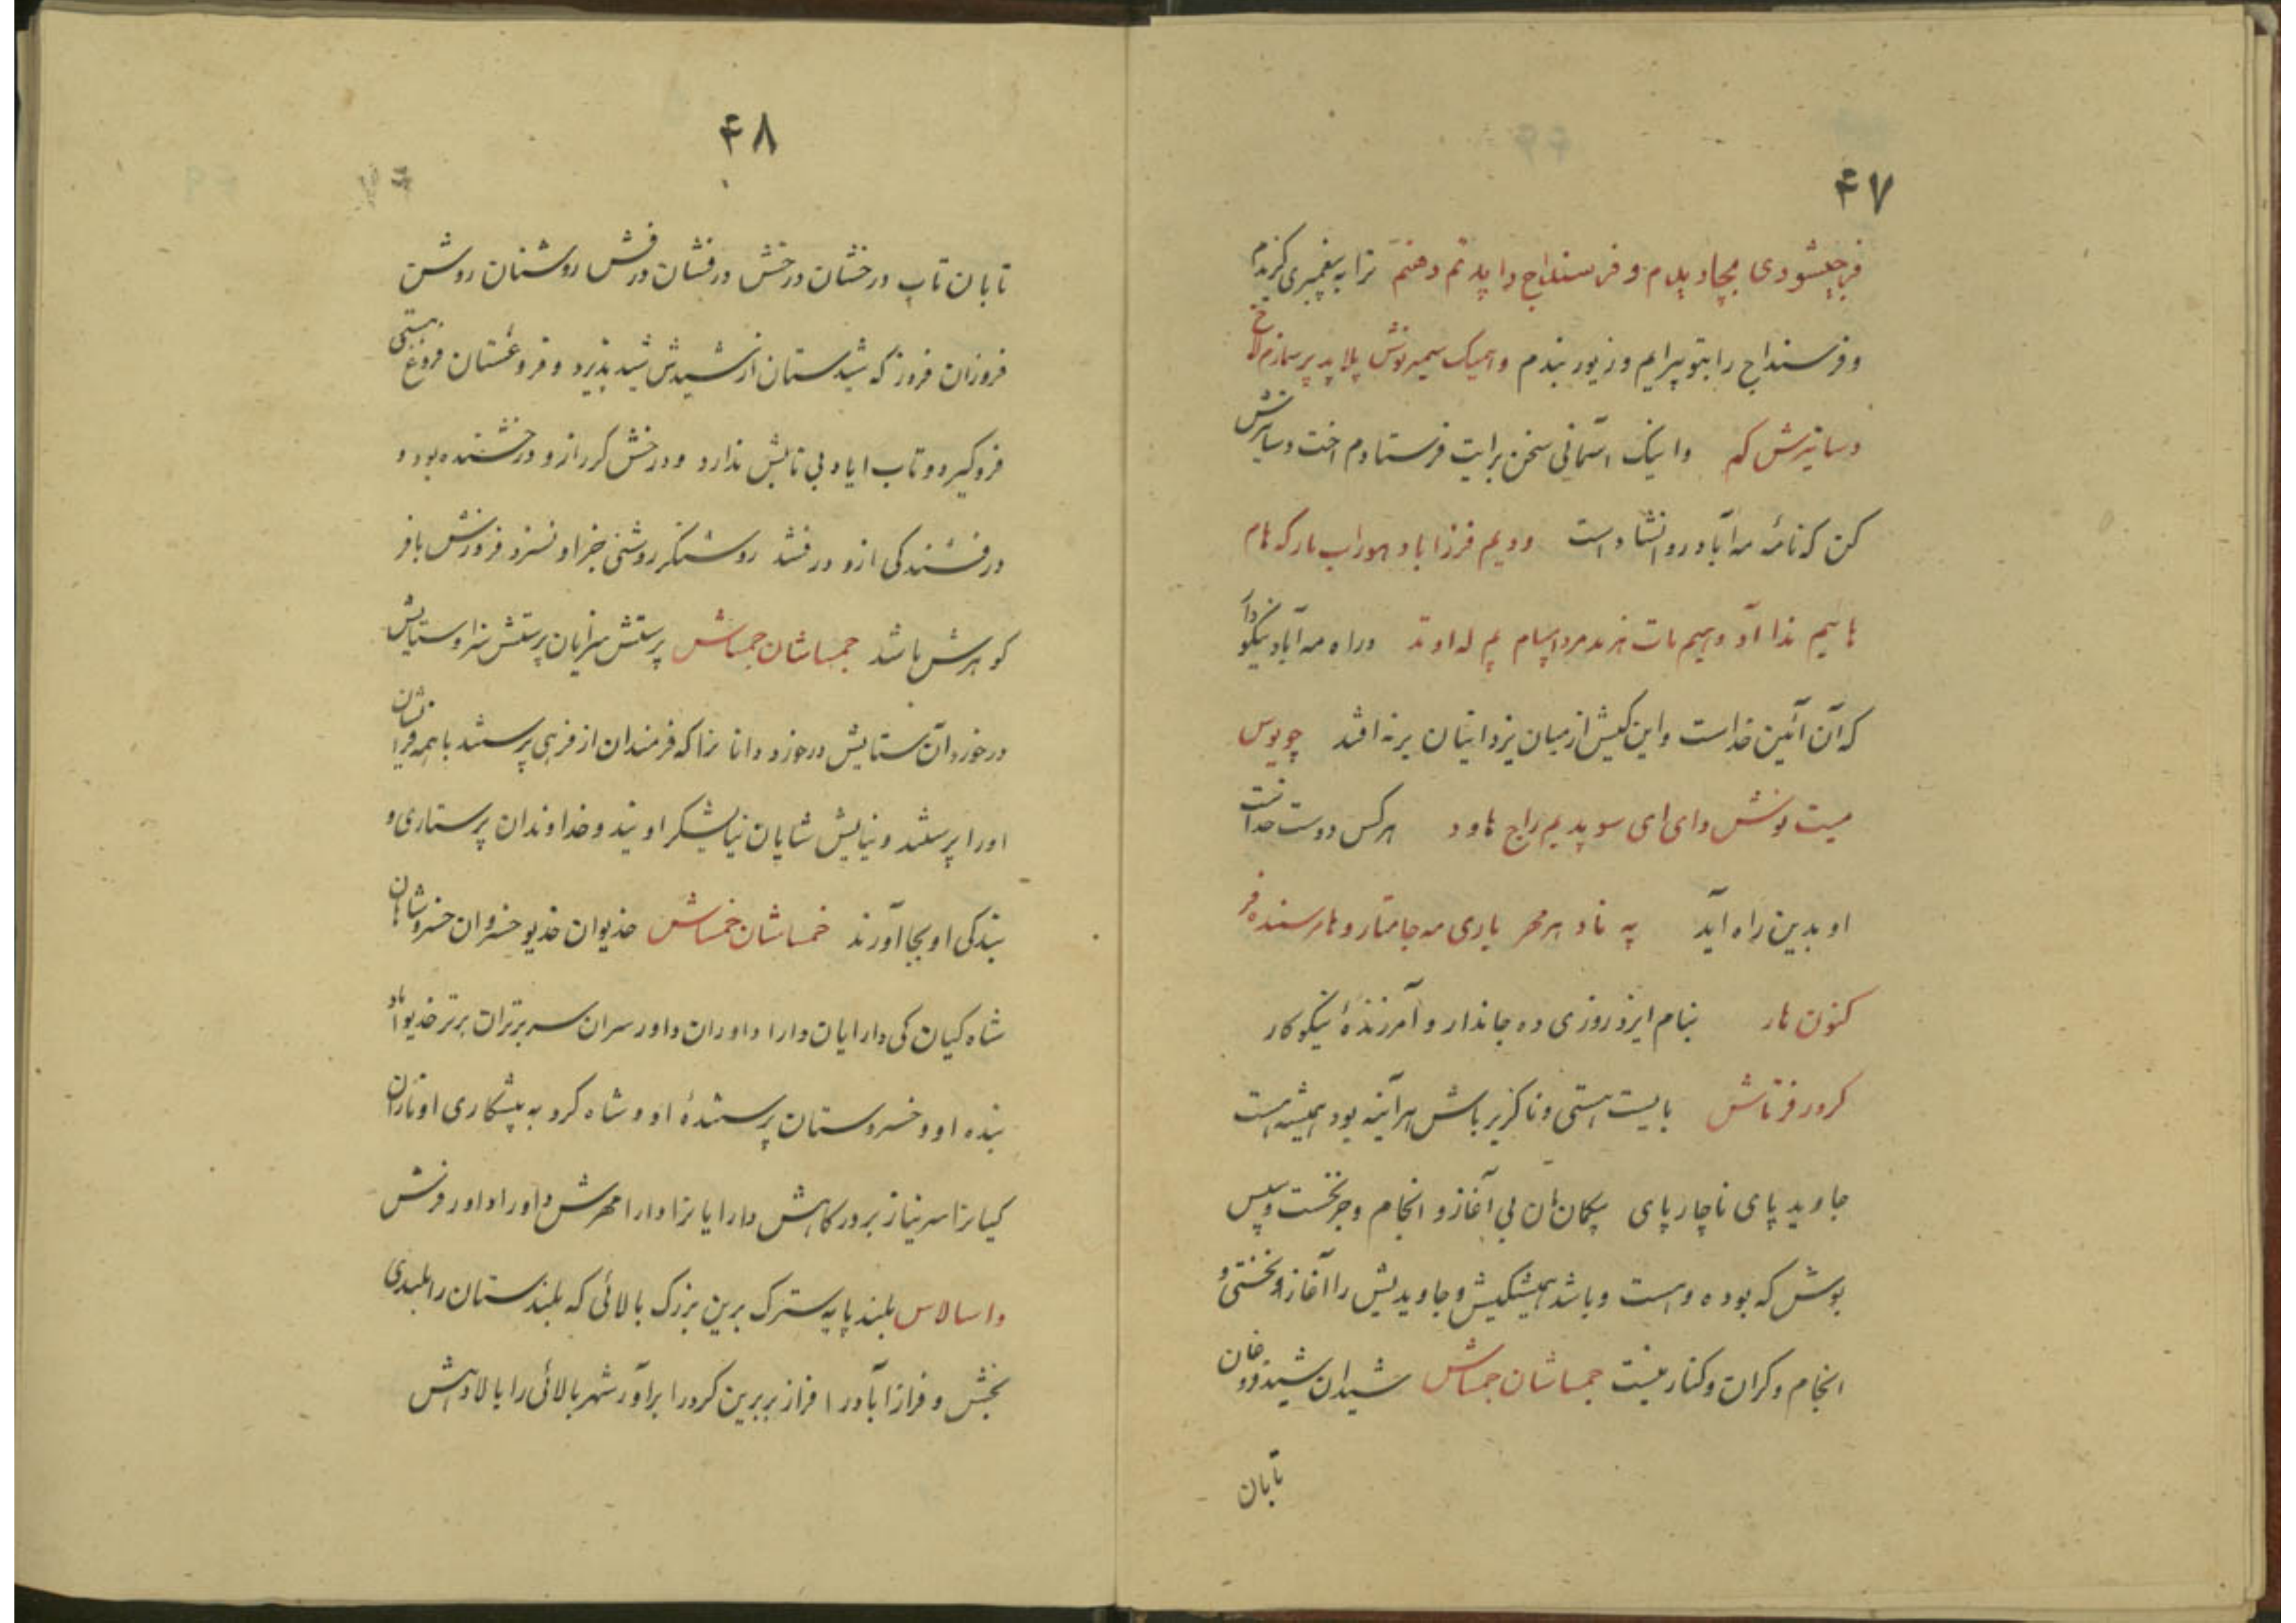 ۴۷
فرجیشودی مچاد یلام و فرسنداج را پدتم دهنم ترا به پیغمبری گزیدم
و فرسنداج را بتو پیرایم و زیور بندم و اهمیک سیمیر نوش پلا پد پرسمازم لاخ
دساتیرش کم و اینک آسمانی سخن برایت فرستادم اخت دساتیرش
کن که نامهٔ مه آباد روانشاد است و دیم فرزاباد هوراب مارکه هام
هاییم ندا آد و هیم مات نرندمرداسپام لم له اوند و راه مه آباد نیکو دار
که آن آئین خداست و این کیش از میان یزدانیان برنه افتد چویوس
میت نوش دای ای سو پدیم راج هاود هرکس دوست خداست
او بدین راه آید په ناد هر محر یاری مه جامتار و هامرسنده فر
کنون هار بنام ایزد روزی ده جاندار و آمرزندهٔ نیکوکار
کرور فرتاش بایست هستی و ناگزیر باش هر آینه بود همیشه هست
جاوید پای ناچار پای بیگمان هان بی آغاز و انجام و جز نخست و سپس
بوش که بوده و هست و باشد همیشگیش و جاویدیش را آغاز و نخستی و
انجام و کران و کنار نیست جمساشان جمساش شیدان شید فروغان
تابان
۴۸
تابان تاب درخشان درخش درفشان درفش روشنان روشن
فروزان فروز که شیدستان از شیدش شید پذیرد و فروغستان فروغ هستی
فروگیرد و تاب اباد بی تابش ندارد و درخش گرر ازو درخشنده بود و
درفشندگی ازو درفشد روشنگر روشنی جز او نسزد فروزش با فر
گوهرش باشد جمساشان جمساش پرستش سرایان پرستش سزا و ستایش
در خوردان ستایش در خورد دانا نزا که فرمندان از فرهی پرستند با همه فر ایشان
او را پرستند و نیایش شایان نیایشگر اویند و خداوندان پرستاری و
بندگی او بجا آورند خمساشان خمساش خدیوان خدیو خسروان خسرو شاهان
شاه کیان کی دارایان دارا داوران داور سران سر برتران برتر خدیو آباد
بنده او و خسروستان پرستندهٔ او و شاه کرد به پیشکاری او نازان
کیانرا سر نیاز بر درگاهش دارایانرا دارا مهرش داور را داور فرنش
واسالاس بلند پایه سترک برین بزرگ بالائی که بلندستان را بلندی
بخش و فراز آباد را افراز بر برین کرور را برآور شهر بالائی را بالا دهش